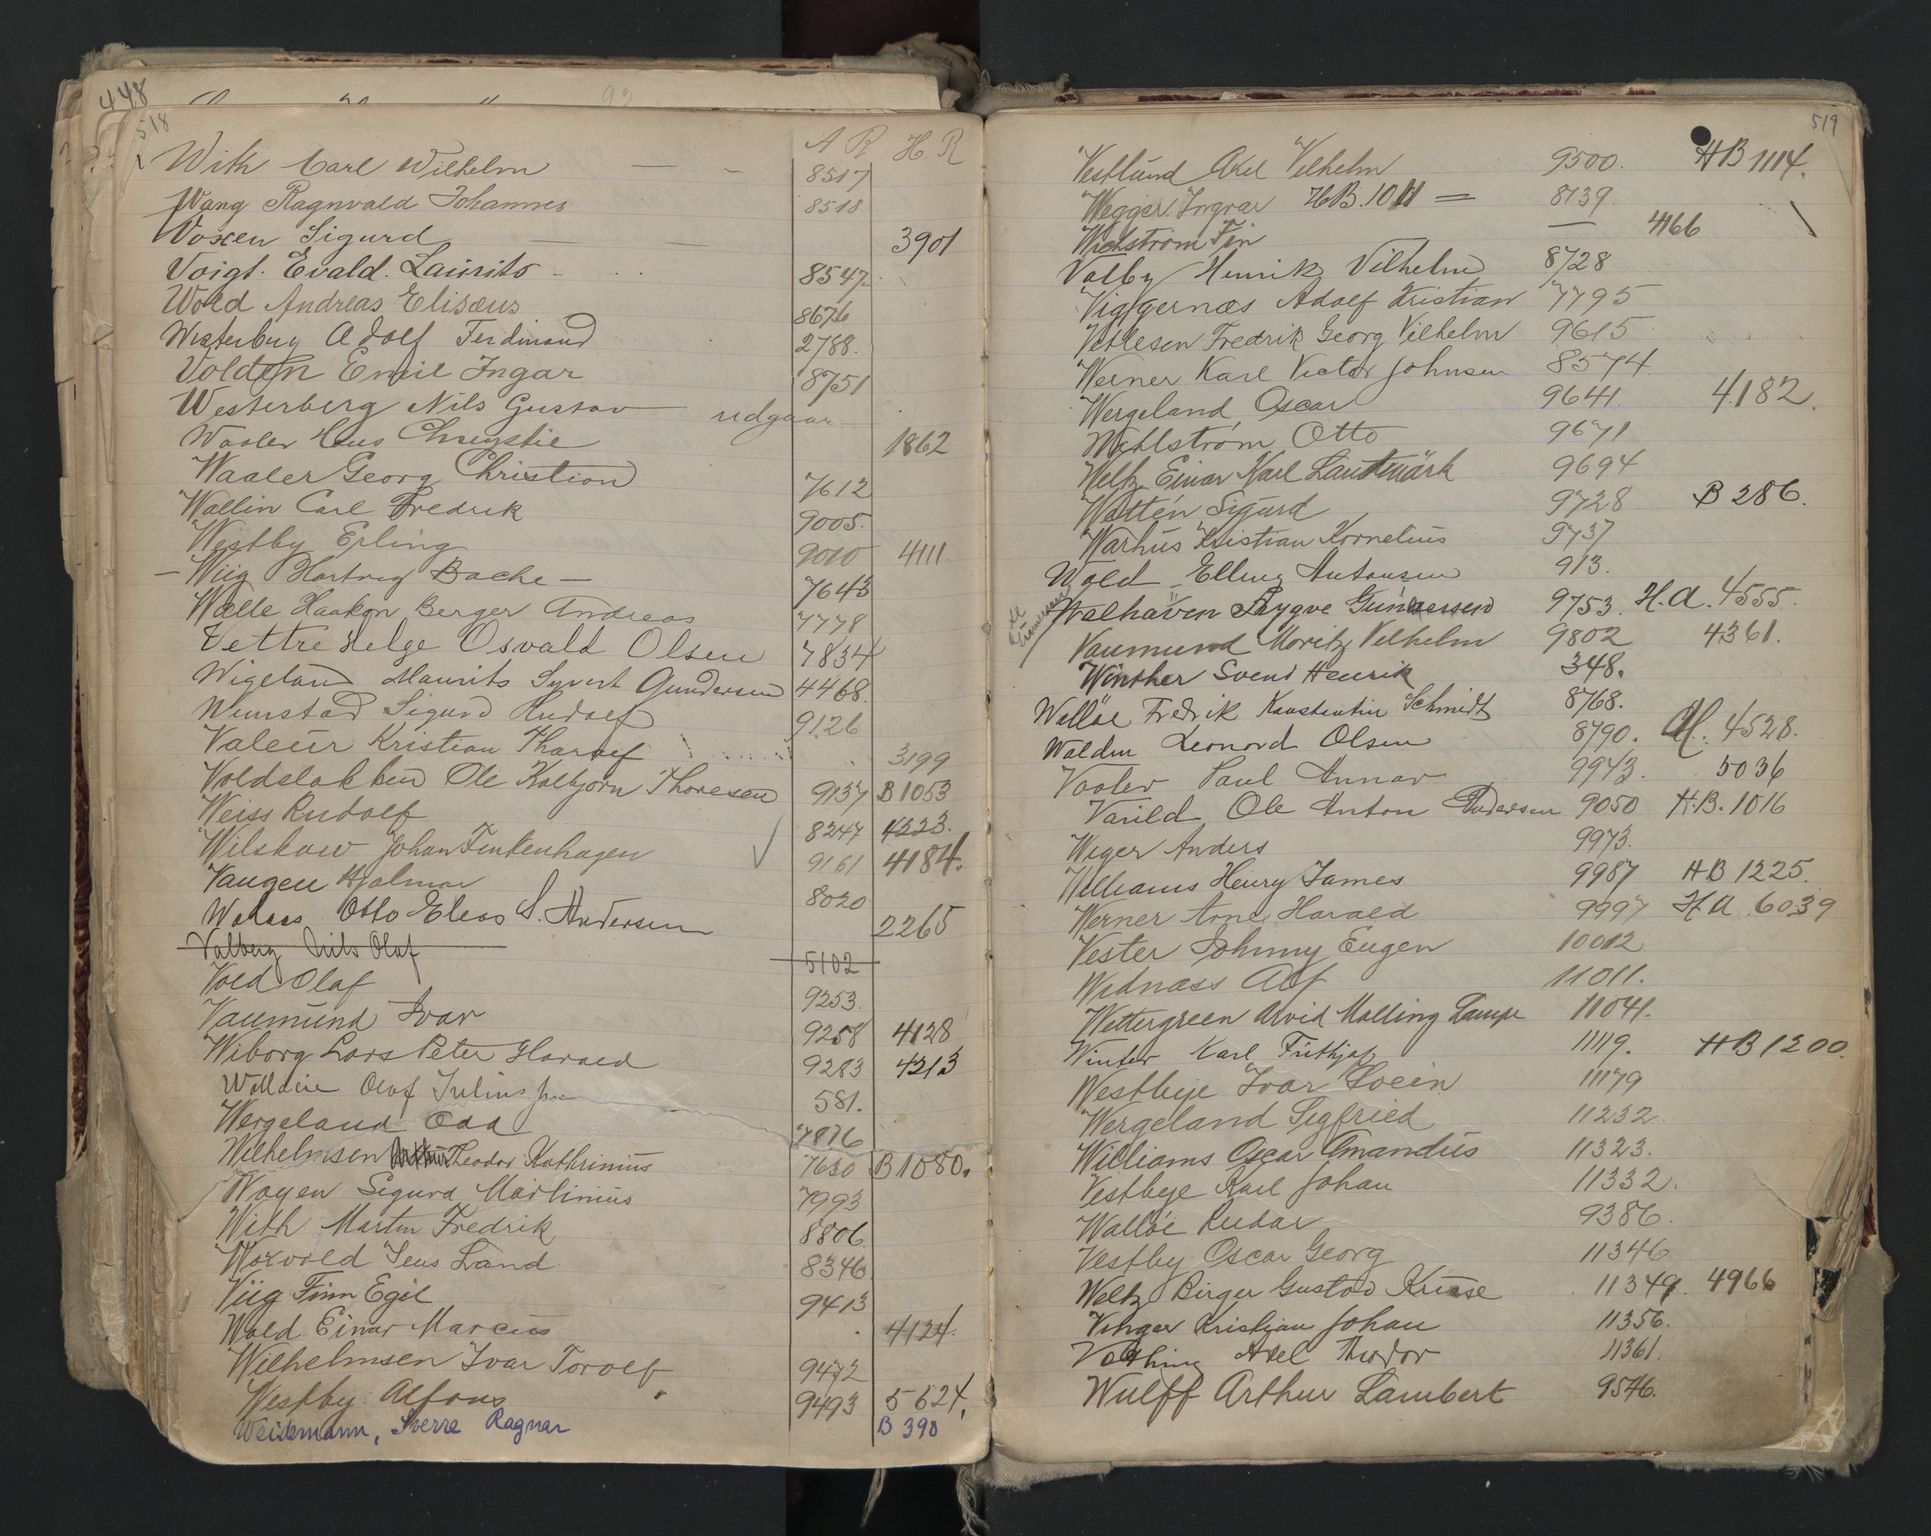 448
518
A R H. R
With Carl Wilhelm — - 8517
Wang Ragnvald Johannes 8518
Voxen Sigurd 3901
Voigt. Evald. Laurits - 8547
Wold Andreas Elisæus 8676
Westerbug Adolf Ferdinand 2788.
Volden Emil Ingar 8751
Westerberg Nils Gustav udgaar
Waaler Chrystie 1862
Waaler Georg Christian 7612
Wallin Carl Fredrik 9005.
Westby Erling 9010 4111.
— Wiig Hartvig Bache — 7643
Walle Haakon Berger Andreas 7778
Vettre Helge Osvald Olsen 7834
Wigeland Maurits Syvert Gundersen 4468.
Sigurd Rudolf 9126
Valeur Kristian Tharaf 3199
Voldsløkken Ole Kolbjørn Thoresen 9137 B 1053
Weiss Rudolf 8247 4223.
Wilskow Johan Finkenhagen 9161 4184.
Vangen Hjalmar 8020
Otto Elias S. Andersen 2265
Valberg Nils Olaf 5102
Vold Olaf 9253.
Vaumund Ivar 9258 4128
Wiborg Lars Peter Harald 9283 4213
Olaf Julius 581.
Wergeland Odd 7876
Wilhelmsen Theodor Kathrinius 7630 B 1080.
Woyen Sigurd Martinius 7993
With Martin Fredrik 8806
Woxvold Jens Land 8346
Viig Finn Egil 9413
Wold Einar Marcus 4124.
Wilhelmsen Ivar Torolf 9472
Westby Alfons 9493 5624.
Weidemann, Sverre Ragnar B 390
519
Vestlund Axel Vilhelm 9500. HB 1114.
Wegger Ingvar HB. 1011 = 8139
Widstrøm Fin — 4166
Valby Henrik Vilhelm 8728
Viggernæs Adolf Kristian 7795
Vetlesen Fredrik Georg Vilhelm 9615
Werner Karl Victor Johnsen 8574
Wergeland Oscar 9641. 4182.
Wahlstrøm Otto 9671
Weltz Einar Karl Lautmärk 9694
Watten Sigurd 9728 B 286.
Warhus Kristian Kornelius 9737
Wold Elling Antonsen 913.
Walhaven Trygve Gundersen 9753. H.A. 4555.
Vaumund Moritz Vilhelm 9802 4361.
Winther Svend Henrik 348.
Walløe Fredrik Konstantin Schmidt 8768.
Walden Leonard Olsen 8790. 4528.
Vaaler Paul Annar 9943. 5036
Varild Ole Anton Andersen 9050 H.B. 1016
Weger Anders 9973.
Williams Henry James 9987 HB 1225.
Werner Arne Harald 9997 HA 6039
Vester Johnny Eugen 10012
Widnæss Alf 11011.
Wettergreen Arvid Malling Lampe 11041.
Winter Karl Frithjof 11119. HB 1200.
Vestbye Ivar Svein 11179
Wergeland Sigfried 11232.
Williams Oscar Amandus 11323.
Vestbye Karl Johan 11332.
Walløe Reidar 9386.
Vestby Oscar Georg 11346
Weltz Birger Gustav Kruse 11349. 4966
Vinger Kristjan Johan 11356.
Axel Theodor 11361.
Wulff Arthur Lambert 9546.